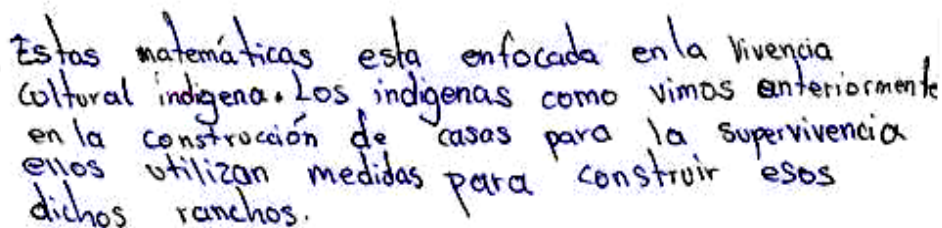 Estas matemáticas esta enfocada en la vivencia
cultural indigena. Los indigenas como vimos anteriormente
en la construcción de casas para la supervivencia
ellos utilizan medidas para construir esos
dichos ranchos.